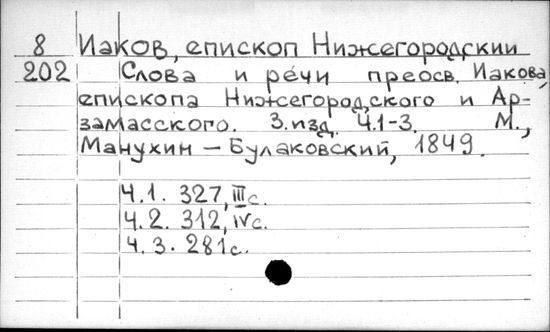 8 Иаков, епископ Нижегородский
202 Слова и речи преосв. Иакова,
епископа Нижегородского и Ар-
замасского. 3.изд. Ч.1-3. М.,
Манухин - Булаковский, 1849.
Ч.1. 327, III с.
Ч.2. 312, IV с.
Ч.3. 281 с.